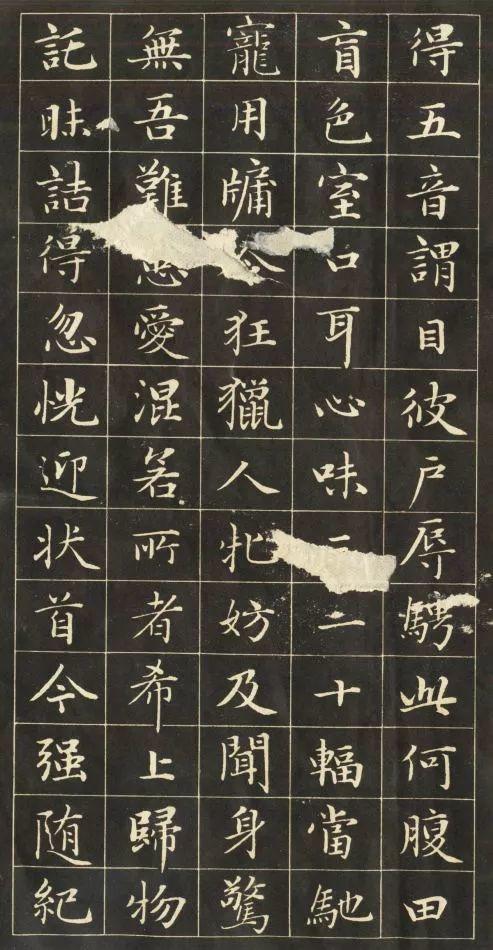 得五音謂目彼戶辱騁此何腹田
盲色室口耳心味二十輻當馳
寵用牖狂獵人牝妨及聞身驚
無吾難愛混若所者希上歸物
託昧詰得忽恍迎状首今强随紀